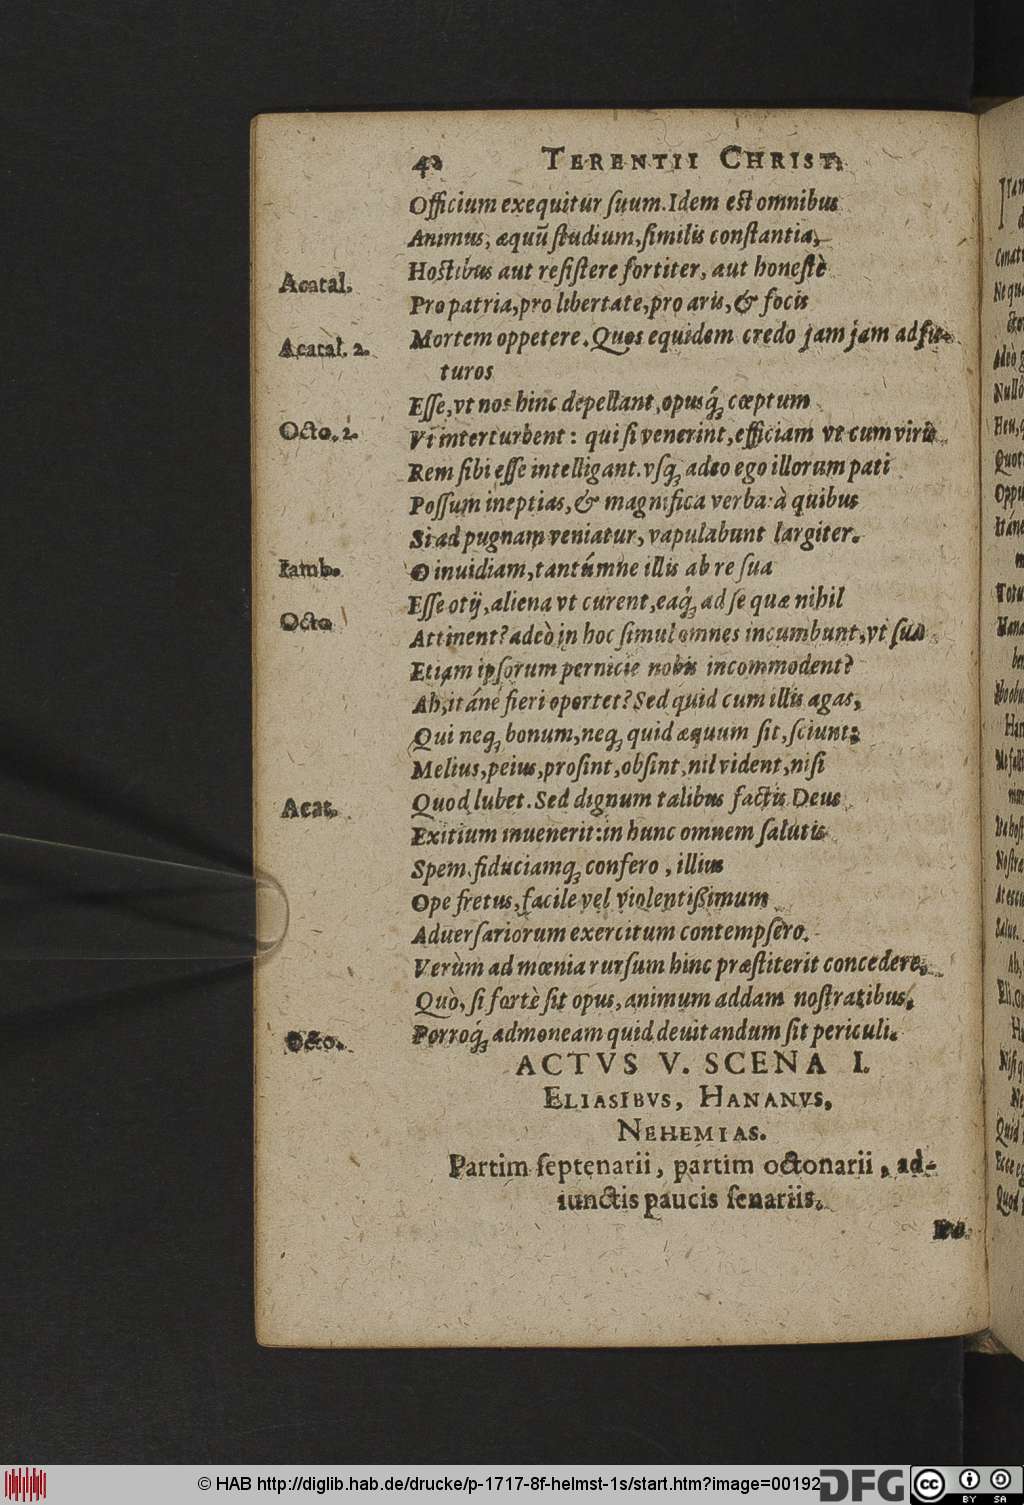 40 TERENTII CHRIST.
Officium exequitur ſuum. Idem est omnibus
Animus, æquũ ſtudium, ſimilis conſtantia,
Acatal. Hostibus aut reſiſtere fortiter, aut honeſtè
Pro patria, pro libertate, pro aris, & focis
Acatal. 2. Mortem oppetere. Quos equidem credo jam jam adfu-
turos
Eſſe, vt nos hinc depellant, opusq́; cœptum
Octo. 2. Vt interturbent: qui ſi venerint, efficiam vt cum viris
Rem ſibi eſſe intelligant. vſq; adeo ego illorum pati
Poſſum ineptias, & magnifica verba: à quibus
Si ad pugnam veniatur, vapulabunt largiter.
Iamb. O inuidiam, tantúmne illis ab re ſua
Octo Eſſe otij, aliena vt curent, eaq́; ad ſe quæ nihil
Attinent? adeò in hoc ſimul omnes incumbunt, vt ſua
Etiam ipſorum pernicie nobis incommodent?
Ah, itáne fieri oportet? Sed quid cum illis agas,
Qui neq; bonum, neq; quid æquum ſit, ſciunt:
Melius, peius, proſint, obſint, nil vident, niſi
Acat. Quod lubet. Sed dignum talibus factis Deus
Exitium inuenerit: in hunc omnem ſalutis
Spem, fiduciamq; confero, illius
Ope fretus, facile vel violentißimum
Aduerſariorum exercitum contempſero.
Verùm ad mœnia rurſum hinc præſtiterit concedere,
Quò, ſi fortè ſit opus, animum addam noſtratibus,
Octo. Porroq́; admoneam quid deuitandum ſit periculi.
ACTVS V. SCENA I.
ELIASIBVS, HANANVS,
NEHEMIAS.
Partim ſeptenarii, partim octonarii, ad-
iunctis paucis ſenariis.
© HAB http://diglib.hab.de/drucke/p-1717-8f-helmst-1s/start.htm?image=00192
DFG
cc BY SA